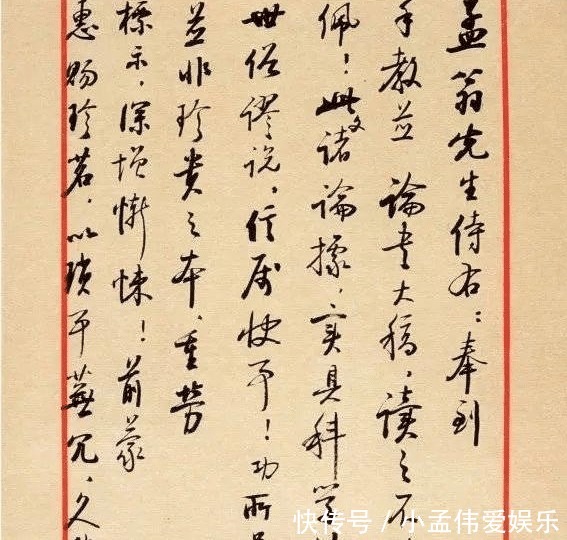 孟翁先生侍右：奉到
手教并 论书大稿，读之不
佩！此文诸论据，实具科学
世俗谬说，信属快事！功
并非珍贵之本，重劳
标示，深增惭悚！前蒙
惠赐珍茗，以琐事芜冗，久
快传号 / 小孟伟爱娱乐